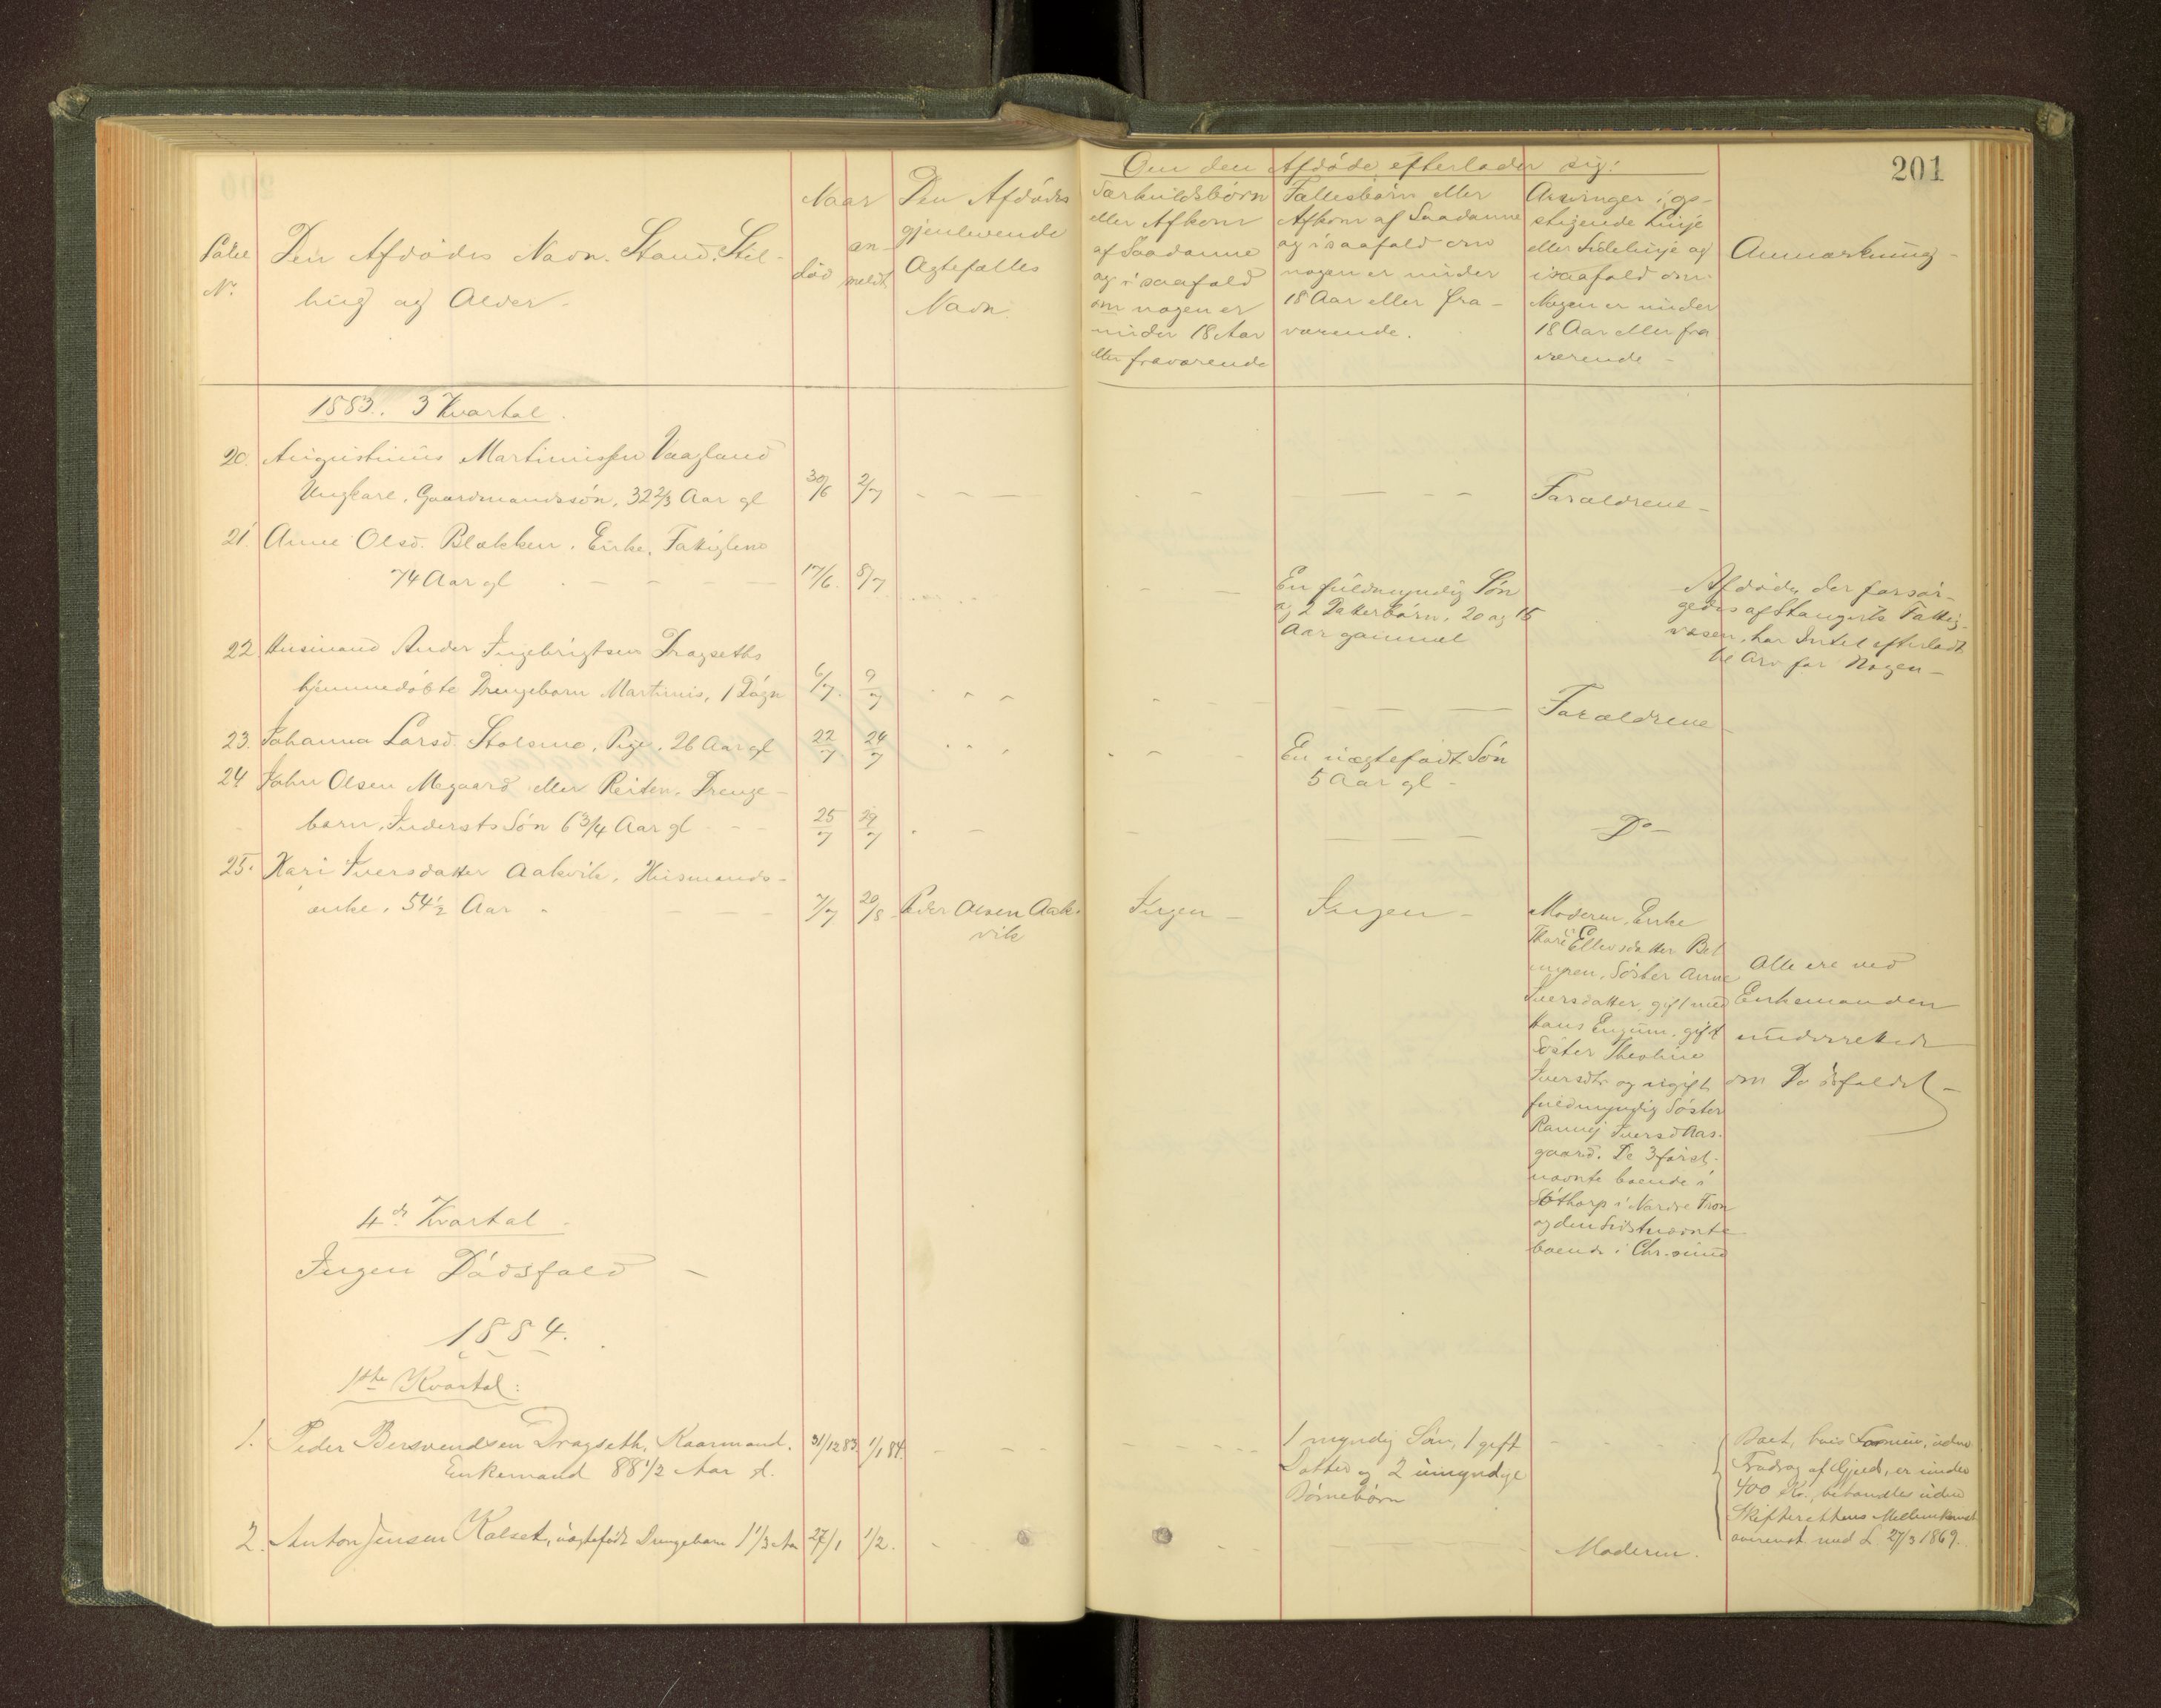 201
Om den Afdöde efterlader sig:
Løbe
No.
Den Afdødes Navn. Stand. Stil-
ling og Alder -
Naar
död
an-
meldt
Den Afdödes
gjenlevende
Ægtefælles
Navn.
Særkuldsbörn
eller Afkom
af Saadanne
og i saafald
om nogen er
under 18 Aar
eller fraværende
Fællesbörn eller
Afkom af Saadanne
og i saafald om
nogen er under
18 Aar eller fra-
værende.
Arvinger i op-
stigende Linje
eller Sidelinje og
i saafald om
Nogen er under
18 Aar eller fra
værende -
Anmærkning -
1883. 3 Kvartal.
20. Augustinus Martinussen Vaagland
Ungkarl, Gaardmandssön, 32 2/3 Aar gl 30/6 2/7 Forældrene -
21. Anne Olsd. Blekken. Enke, Fattiglem
74 Aar gl 17/6. 8/7
En fuldmyndig Sön
og 2 Datterbörn, 20 og 15
Aar gammel
Afdöde, der forsör-
gedes af Stangviks Fattig-
væsen, har Intet efterladt
til Arv for Nogen -
22. Husmand Ander Ingebrigtsen Dragseths
hjemmedöbte Drengebarn Martinus, 1 Dögn 6/7. 9/7 Forældrene
23. Johanna Larsd. Stolsmo, Pige, 26 Aar gl 22/7 24/7 En uægtefödt Sön
5 Aar gl -
24 John Olsen Megaard eller Reiten, Drenge-
barn, Inderst Sön 6 3/4 Aar gl 25/7 29/7 Do -
25. Kari Iversdatter Aakvik, Husmands-
enke, 54 1/2 Aar 7/7 20/8 Peder Olsen Aak-
vik
Ingen - Ingen -
Moderen, Enke
Mari Ellevsdatter
Söster Anne
Iversdatter, gift med
Hans Engum, gift
Söster Theoline
Iversdtr og ugift
fuldmyndig Söster
Rannej Iversd Aas-
gaard. De 3 först-
nævnte boende i
Söthorp i Nordre Fron
og den Sidstnævnte
boende i Chr.sund
Alle ere ved
Enkemanden
underrettede
om Dödsfaldet -
4de Kvartal -
Ingen Dödsfald -
1884.
1ste Kvartal:
1. Peder Bersvendsen Dragseth, Kaarmand.
Enkemand 88 1/2 Aar gl. 31/12 83. 1/1 84.
1 myndig Sön, 1 gift
Datter og 2 umyndige
Börnebörn
Boet, hvis Formue, uden
Fradrag af Gjæld, er under
400 Kr., behandles uden
Skifterettens Mellemkomst
overenst med L 27/3 1869.
2. Anton Jensen Kalset, uægtefödt Drengebarn 1 1/3 Aar 27/1 1/2. Moderen.